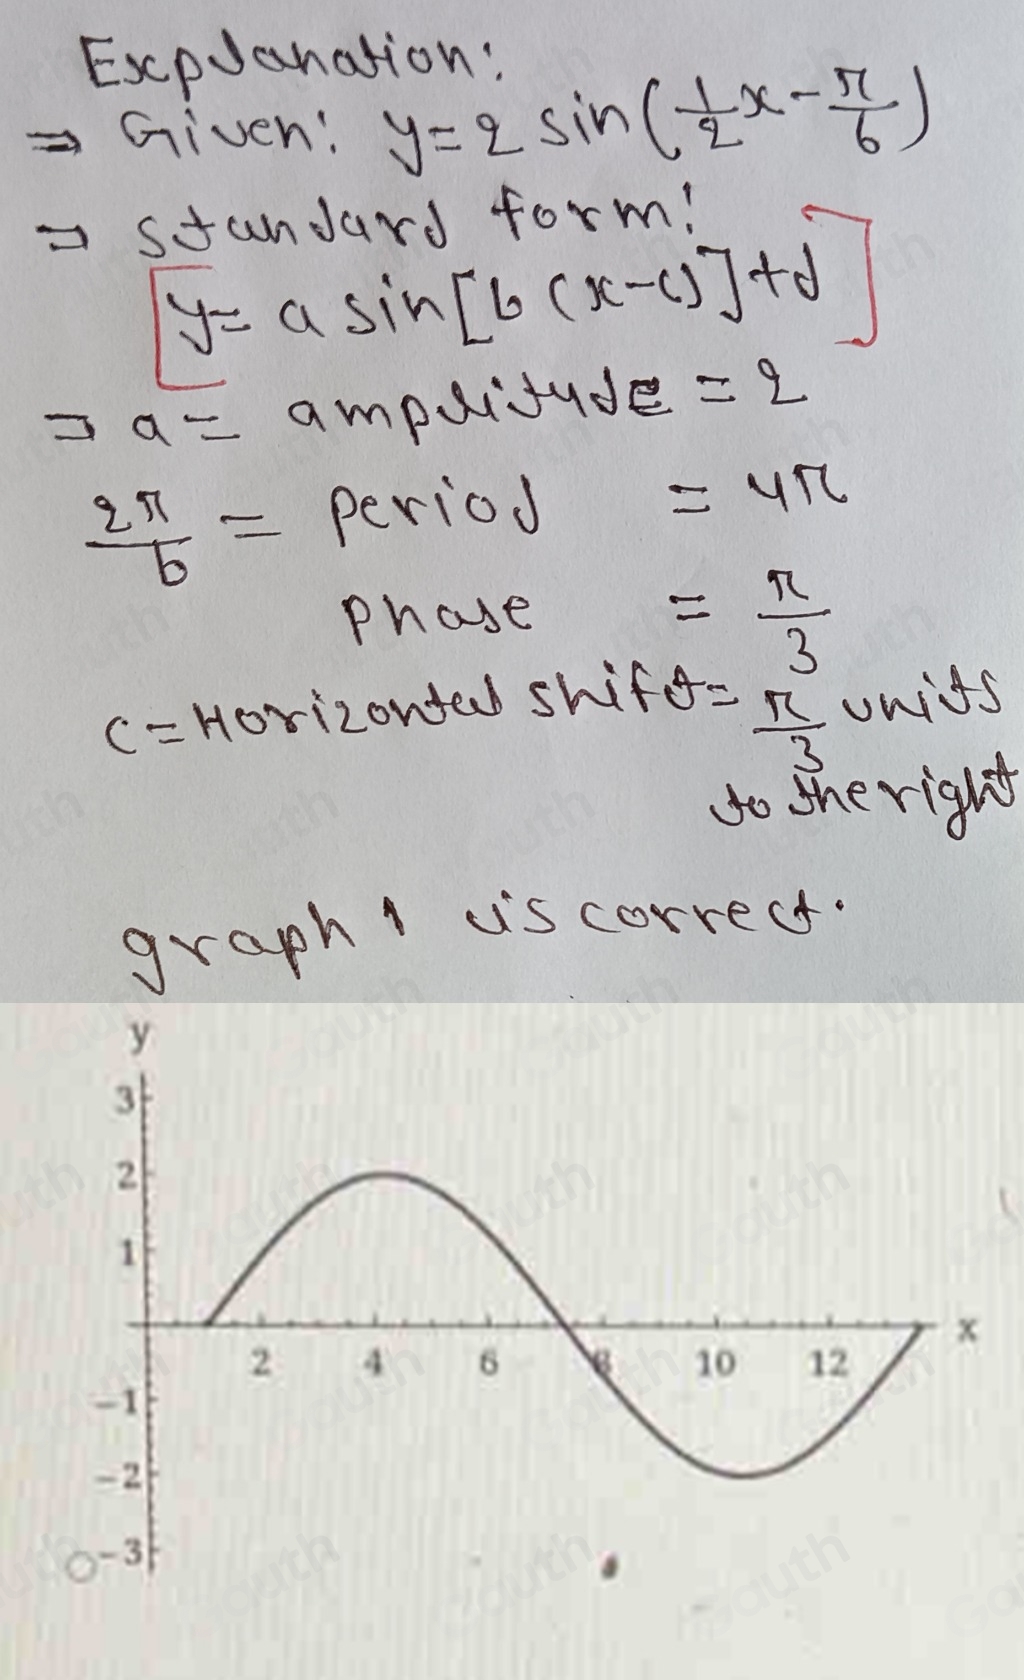 Explanation:
⇒ Given: y = 2 sin(1/2 x - π/6)
⇒ standard form:
[y = a sin[b(x-c)] + d]
⇒ a = amplitude = 2
2π/b = Period = 4π
Phase = π/3
c = Horizontal shift = π/3 units
to the right
graph 1 is correct.
y
3
2
1
2 4 6 8 10 12 x
-1
-2
-3